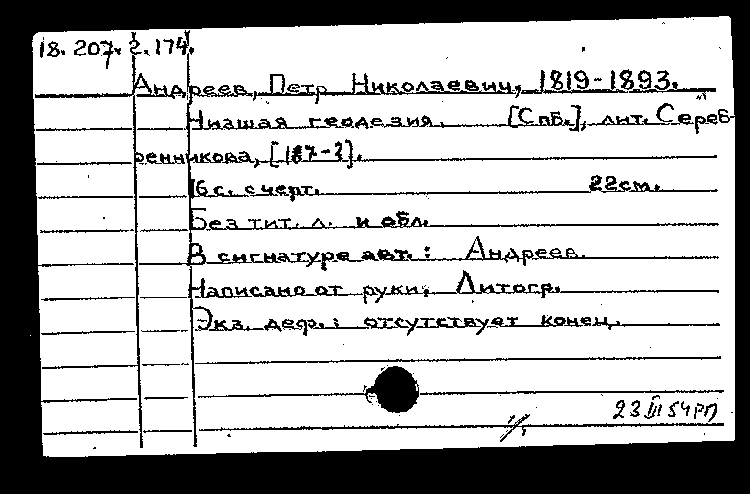 18. 207. 2. 174.
Андреев, Петр Николаевич, 1819-1893.
Низшая геодезия. [Спб.], лит. Сереб-
ренникова, [187-?].
16 с. с черт. 22см.
Без тит. л. и обл.
В сигнатуре авт.: Андреев.
Написано от руки; Литогр.
Экз. деф.: отсутствует конец.
23 III 54 РП